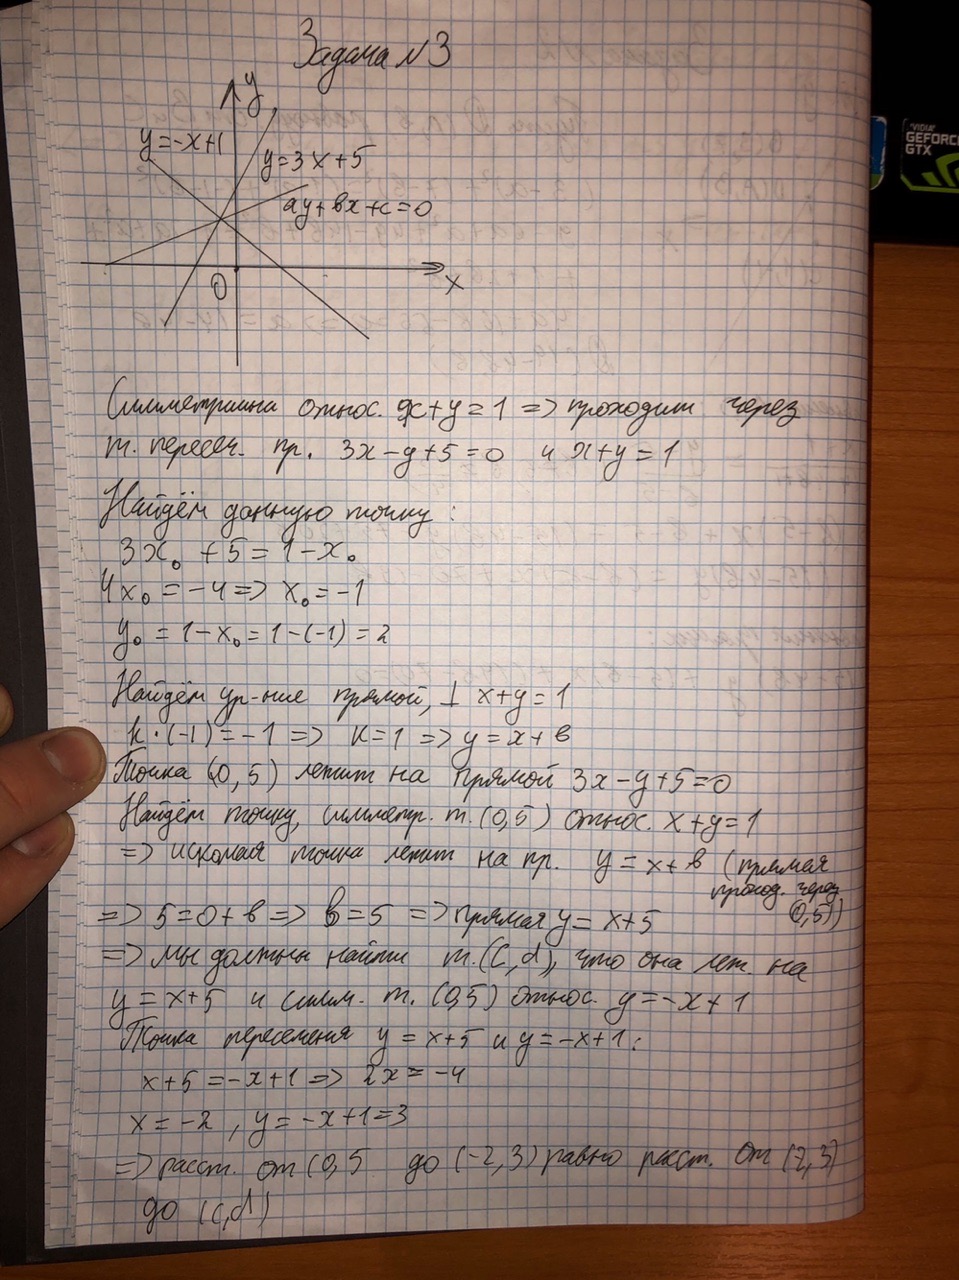 Задача №3
y
y=-x+1
y=3x+5
ay+bx+c=0
0
x
Симметрична относ. x+y=1 => проходит через
т. пересеч. пр. 3x-y+5=0 и x+y=1
Найдём данную точку:
3x₀+5=1-x₀
4x₀=-4=> x₀=-1
y₀=1-x₀=1-(-1)=2
Найдём ур-ние прямой, ⊥ x+y=1
k·(-1)=-1 => k=1 => y=x+b
Точка (0,5) лежит на прямой 3x-y+5=0
Найдём точку, симметр. т.(0,5) относ. x+y=1
=> искомая точка лежит на пр. y=x+b (прямая
проход. через
0,5))
=> 5=0+b => b=5 => прямая y=x+5
=> мы должны найти т.(c,d), что она леж. на
y=x+5 и симм. т. (0,5) относ. y=-x+1
Точка пересечения y=x+5 и y=-x+1:
x+5=-x+1=> 2x=-4
x=-2, y=-x+1=3
=> расст. от (0,5 до (-2,3) равно расст. от (2,3)
до (c,d)
NVIDIA
GEFORCE
GTX